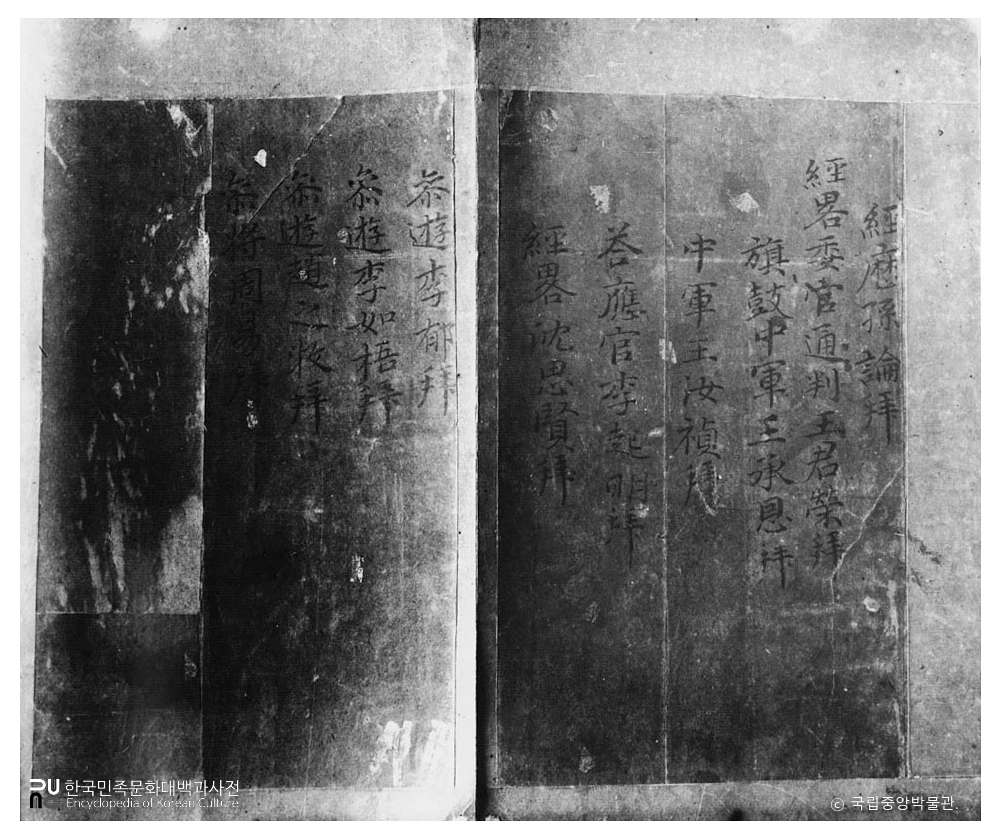 經歷孫論拜
經畧委官通判王君榮拜
旗鼓中軍王承恩拜
中軍王汝禎拜
荅應官李起明拜
經畧沈思賢拜
叅遊李郁拜
叅遊李如梧拜
叅遊趙之牧拜
叅將周易拜
한국민족문화대백과사전
Encyclopedia of Korean Culture
© 국립중앙박물관